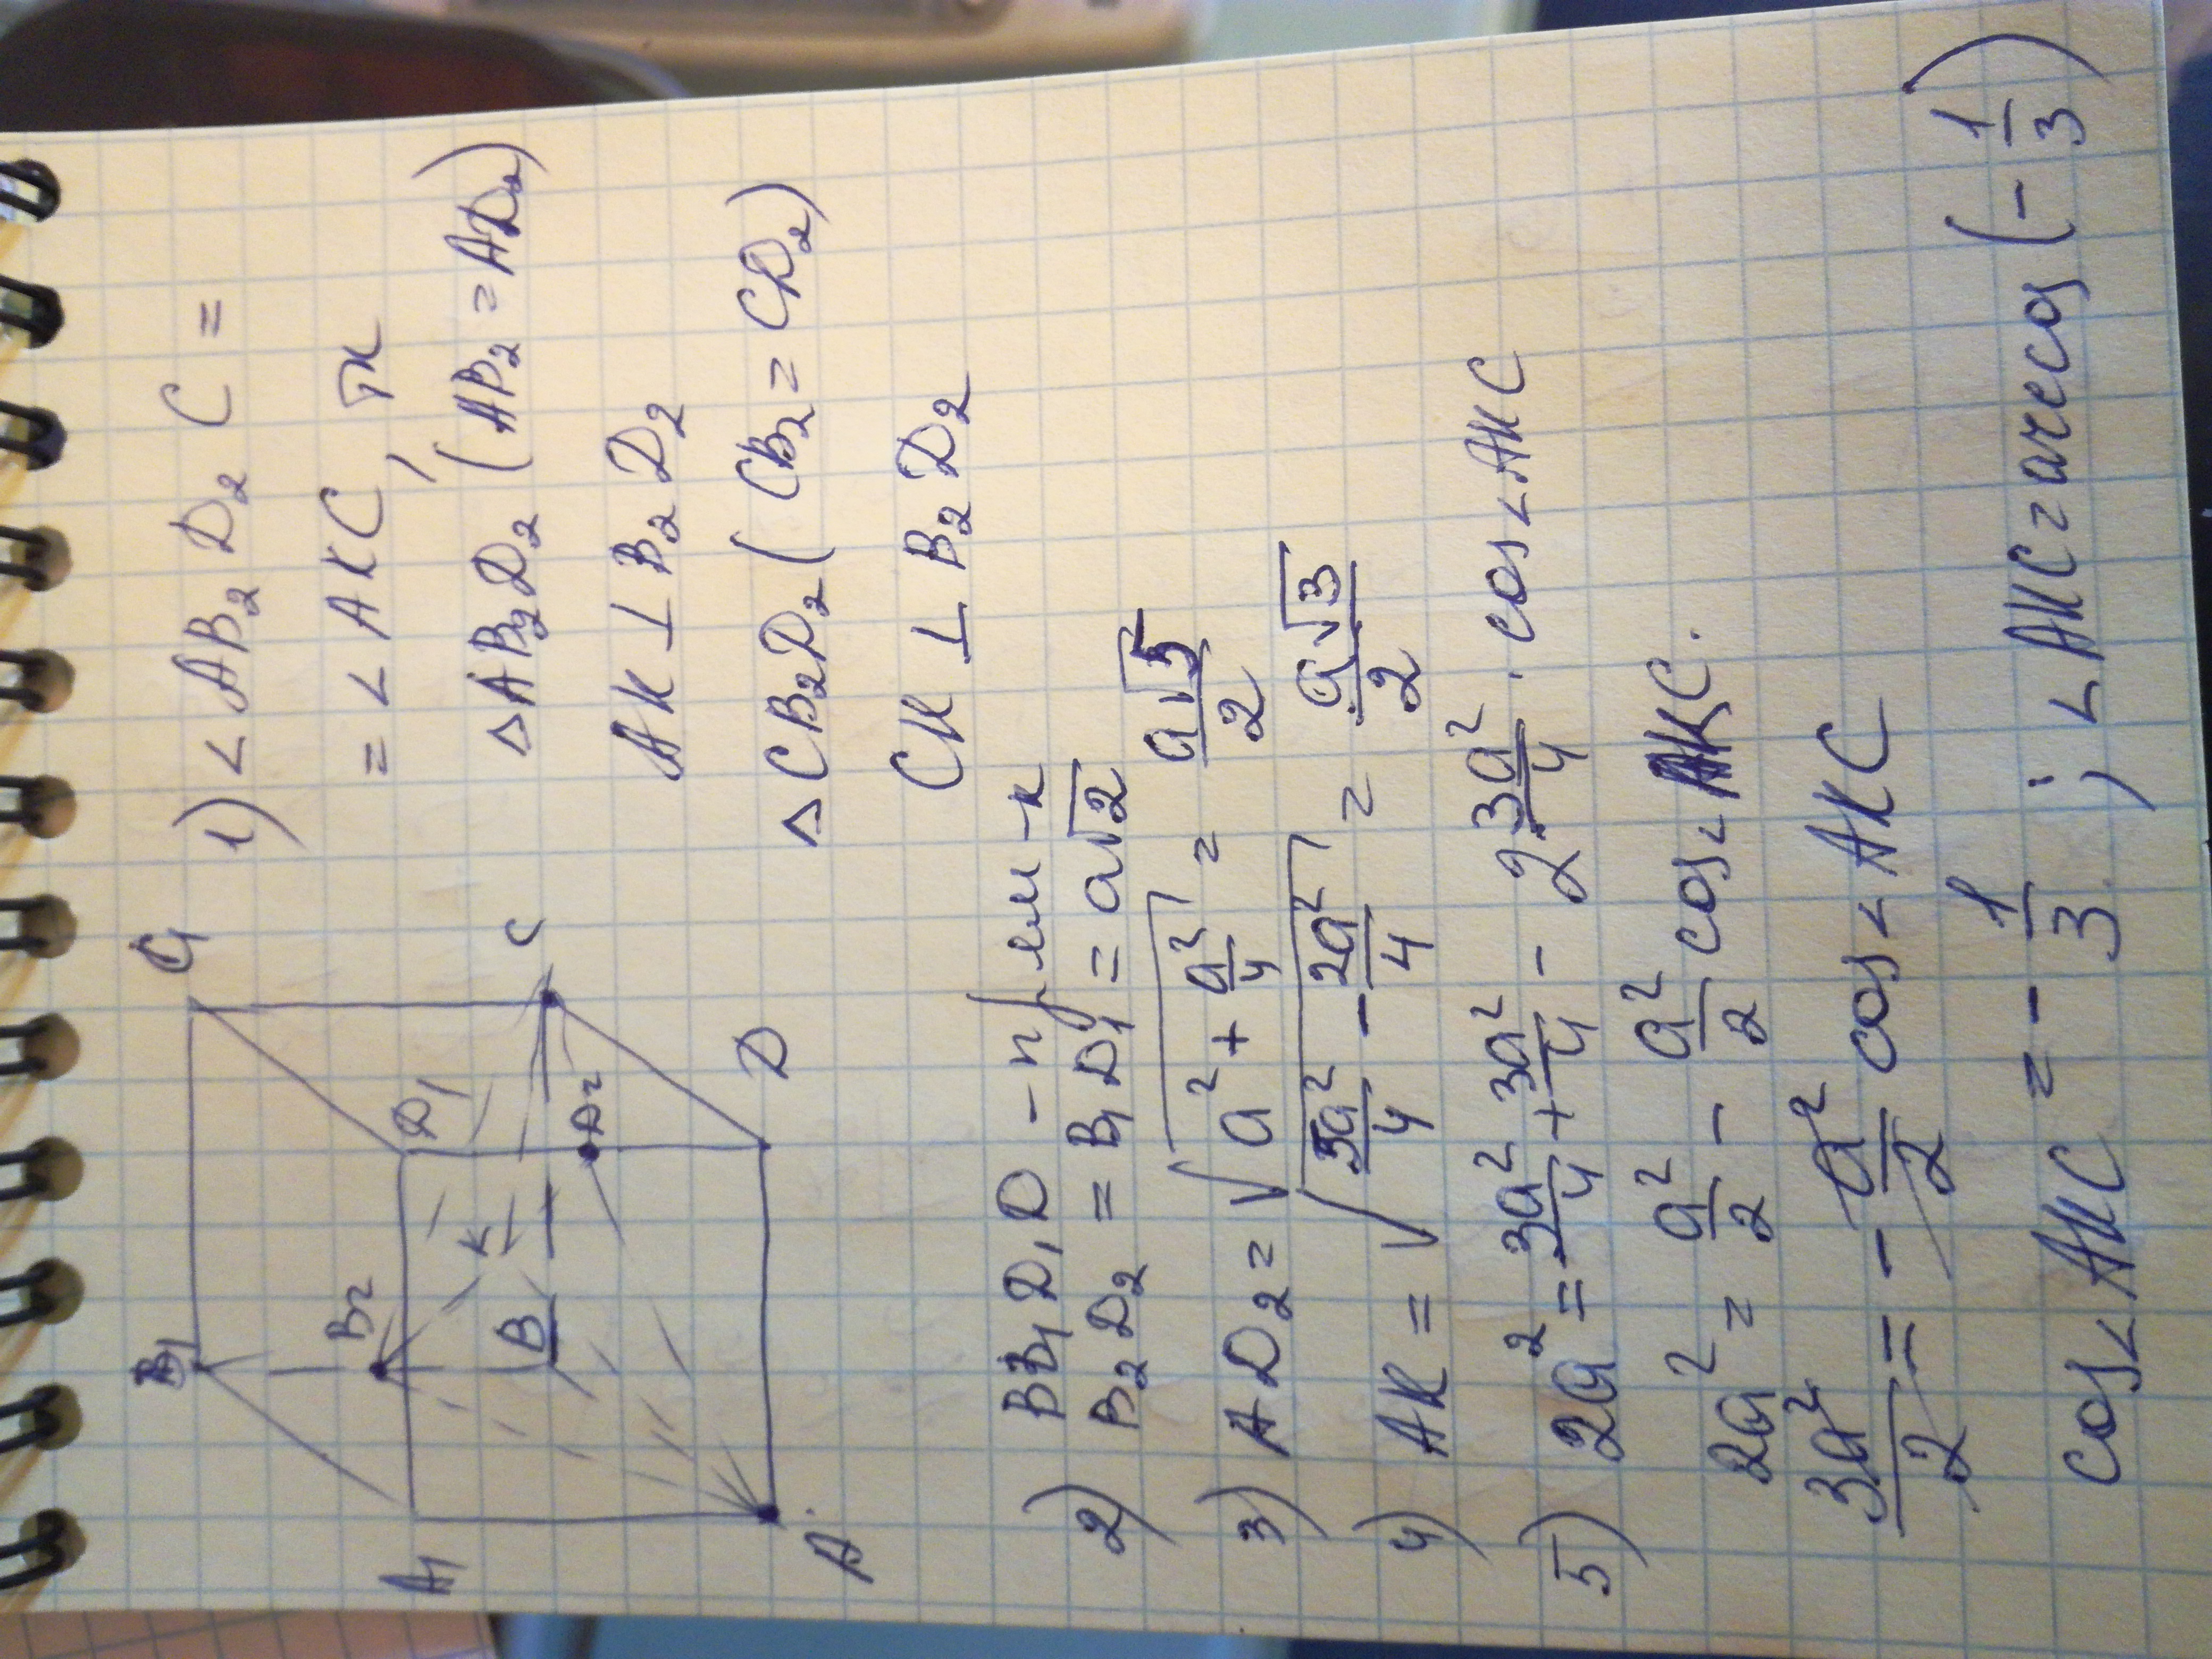 B₁
C₁
B₂
A₁
D₁
K
B
D₂
C
A
D
1) ∠AB₂D₂C =
= ∠AKC, тк
△AB₂D₂ (AB₂ = AD₂)
AK ⊥ B₂D₂
△CB₂D₂ (CB₂ = CD₂)
CK ⊥ B₂D₂
BB₁D₁D -
2) B₂D₂ = B₁D₁ = a√2
3) AD₂ = √(a² + a²/4) = a√5/2
4) AK = √(5a²/4 - 2a²/4) = a√3/2
5) 2a² = 3a²/4 + 3a²/4 - 2·3a²/4 · cos∠AKC
2a² = a²/2 - a²/2 cos∠AKC.
3a²/2 = - a²/2 cos∠AKC
cos∠AKC = - 1/3 ; ∠AKC = arccos(-1/3)